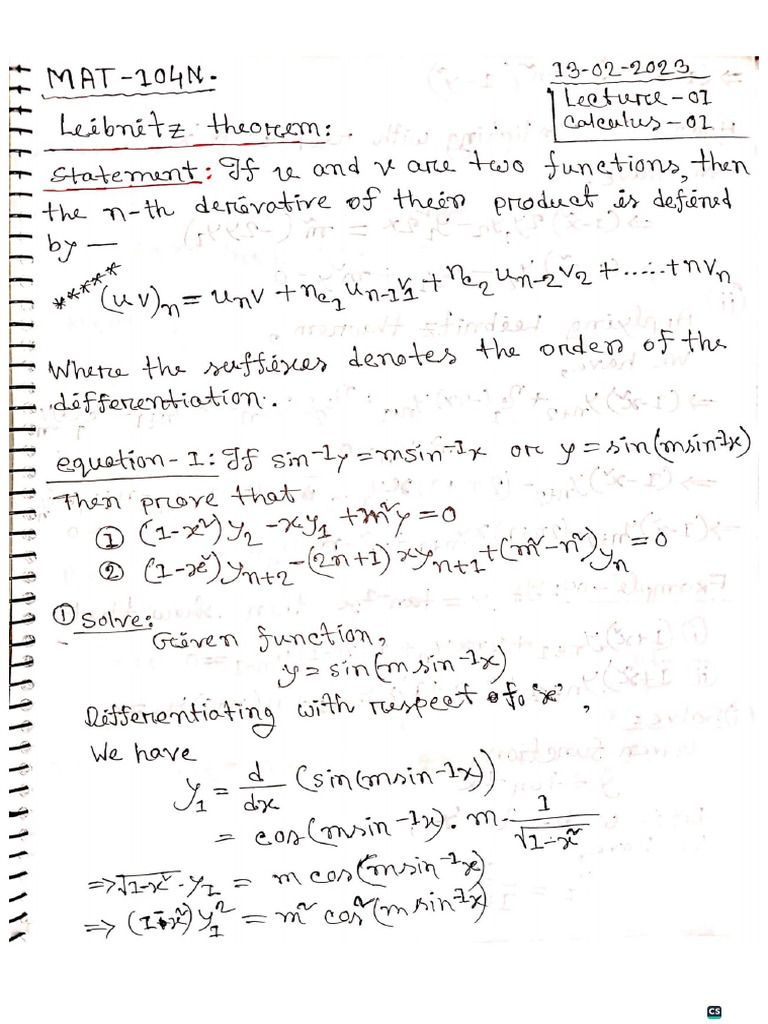 MAT-104N.
13-02-2023
Lecture-01
Calculus-01
Leibnitz theorem:
Statement: If u and v are two functions, then
the n-th derivative of their product is defined
by —
***** (uv)ₙ = uₙv + nc₁ uₙ₋₁v₁ + nc₂ uₙ₋₂v₂ + ..... + nvₙ
Where the suffixes denotes the order of the
differentiation.
equation-1: If sin⁻¹y = msin⁻¹x or y = sin(msin⁻¹x)
Then prove that
① (1-x²)y₂ - xy₁ + m²y = 0
② (1-x²)yₙ₊₂ - (2n+1)xyₙ₊₁ + (m²-n²)yₙ = 0
① Solve:
Given function,
y = sin(m sin⁻¹x)
Differentiating with respect to 'x',
We have
y₁ = d/dx (sin(msin⁻¹x))
= cos(msin⁻¹x). m. 1/√(1-x²)
=> √(1-x²) . y₁ = m cos(msin⁻¹x)
=> (1-x²)y₁² = m² cos²(m sin⁻¹x)
CS